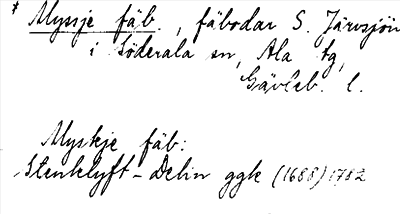 * Myssje fäb., fäbodar S. Järvsjön
i Söderala sn, Ala tg,
Gävleb. l.
Myskje fäb:
Stenklyft-Delin ggk (1688) 1782